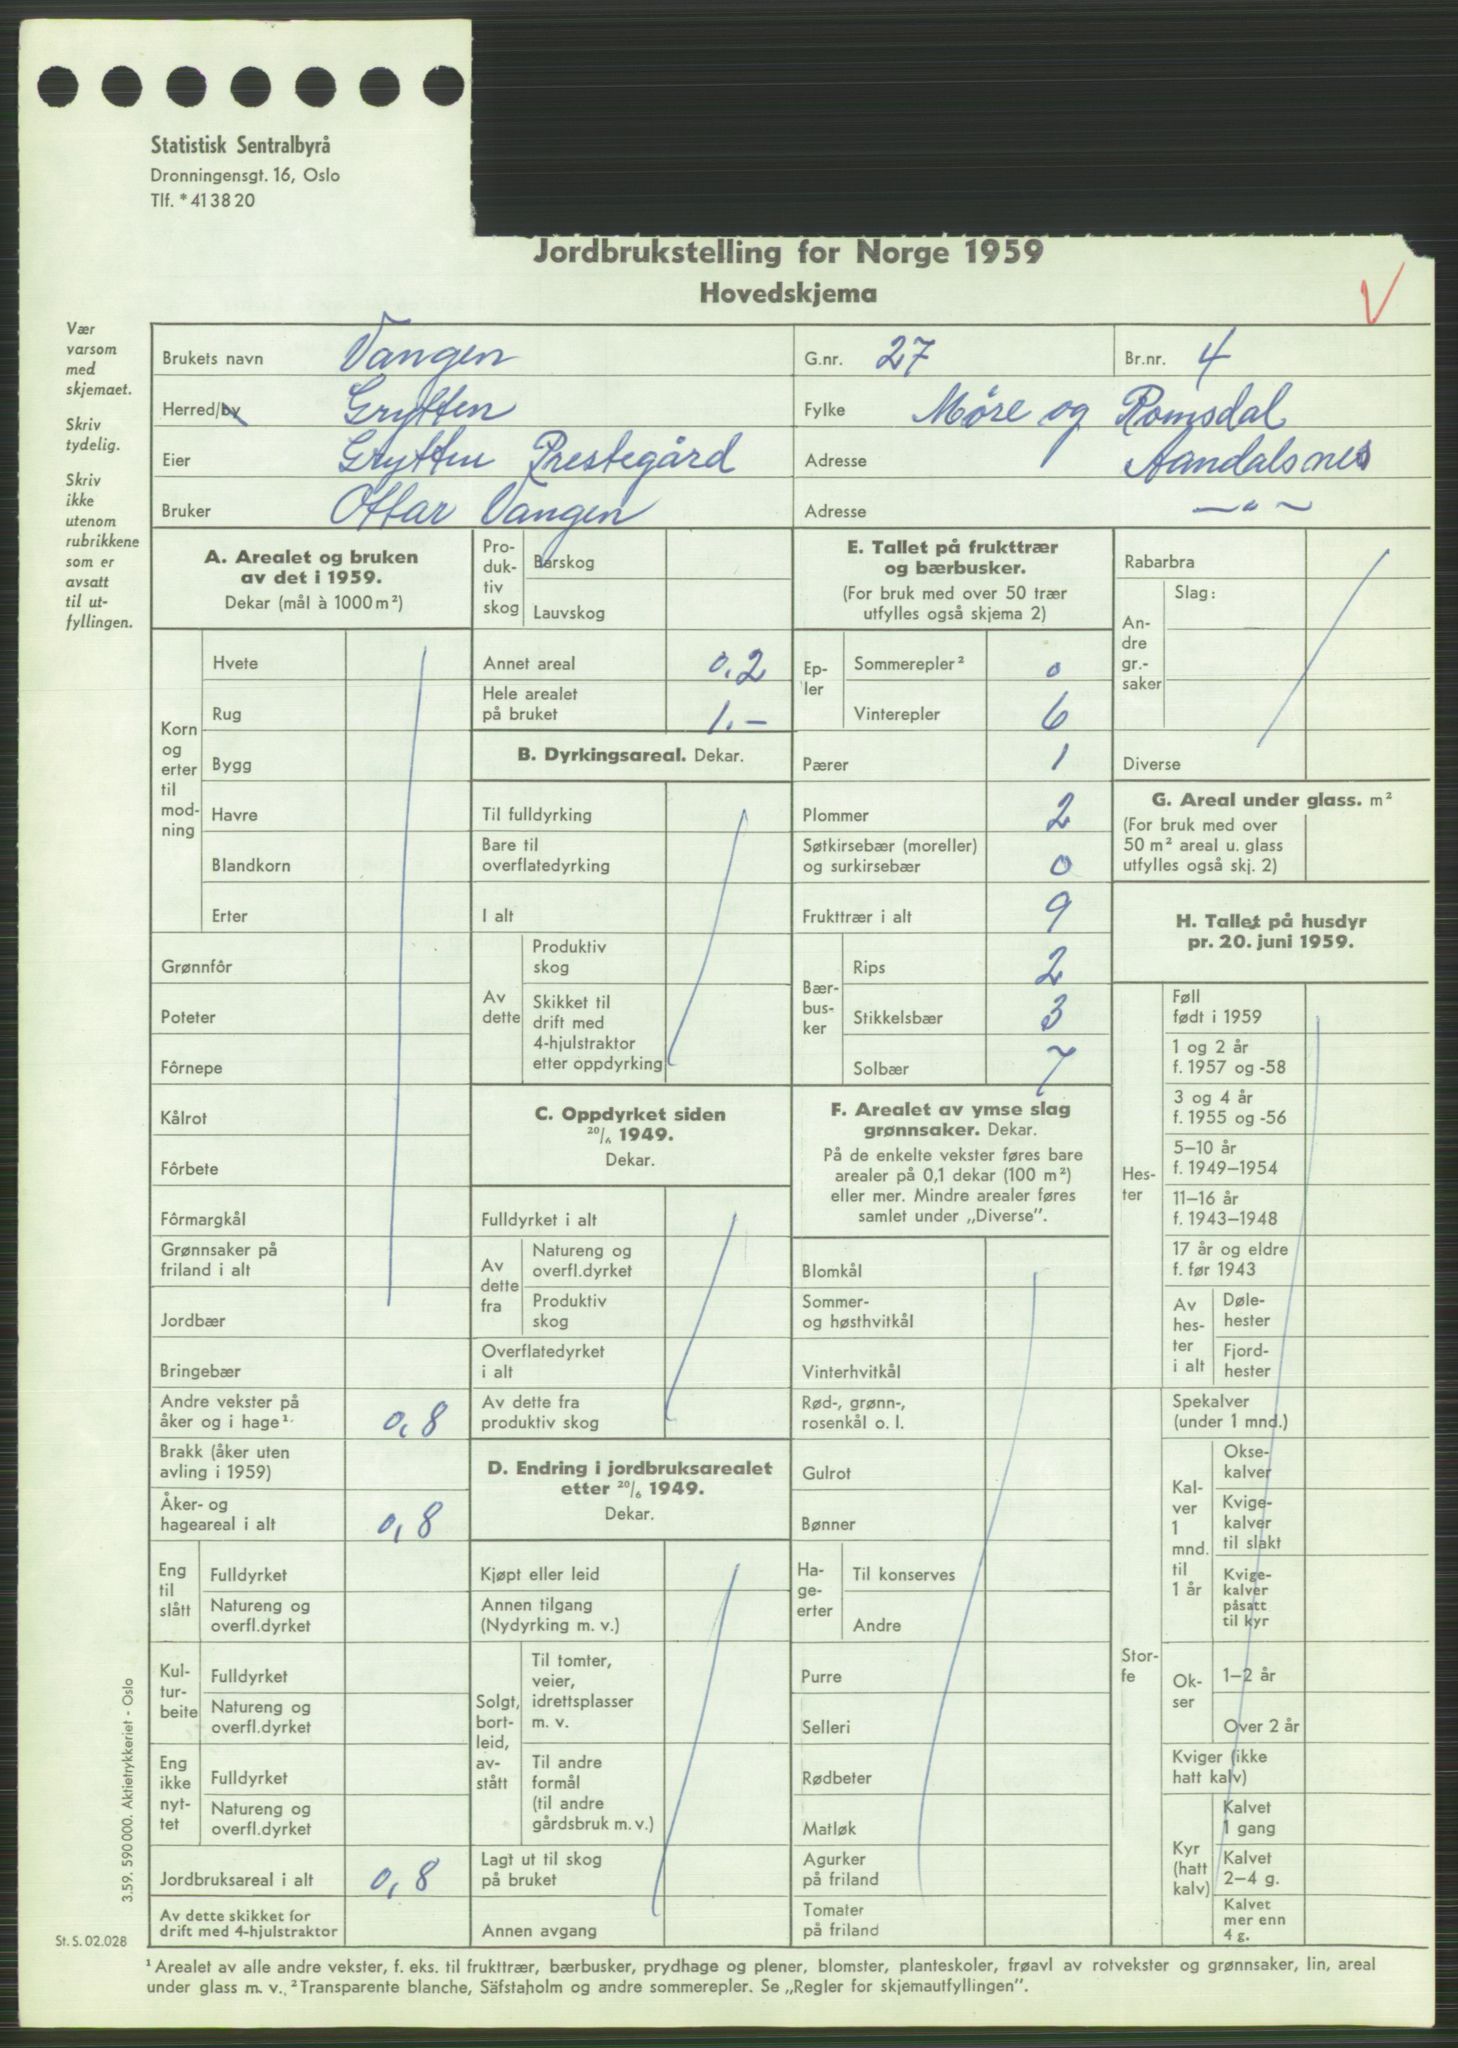 Statistisk Sentralbyrå
Dronningensgt. 16, Oslo
Tlf. * 41 38 20
Jordbrukstelling for Norge 1959
Hovedskjema
V
Vær
varsom
med
skjemaet.
Skriv
tydelig.
Skriv
ikke
utenom
rubrikkene
som er
avsatt
til ut-
fyllingen.
Brukets navn Vangen G.nr. 27 Br.nr. 4
Herred/by Grytten Fylke Møre og Romsdal
Eier Grytten Prestegård Adresse Aandalsnes
Bruker Ottar Vangen Adresse —"—
A. Arealet og bruken
av det i 1959.
Dekar (mål à 1000 m²)
Korn
og
erter
til
mod-
ning
Hvete
Rug
Bygg
Havre
Blandkorn
Erter
Grønnfôr
Poteter
Fôrnepe
Kålrot
Fôrbete
Fôrmargkål
Grønnsaker på
friland i alt
Jordbær
Bringebær
Andre vekster på
åker og i hage¹· 0,8
Brakk (åker uten
avling i 1959)
Åker- og
hageareal i alt 0,8
Eng
til
slått
Fulldyrket
Natureng og
overfl.dyrket
Kul-
tur-
beite
Fulldyrket
Natureng og
overfl.dyrket
Eng
ikke
nyt-
tet
Fulldyrket
Natureng og
overfl.dyrket
Jordbruksareal i alt 0,8
Av dette skikket for
drift med 4-hjulstraktor
Pro-
duk-
tiv
skog
Barskog
Lauvskog
Annet areal 0,2
Hele arealet
på bruket 1.-
B. Dyrkingsareal. Dekar.
Til fulldyrking
Bare til
overflatedyrking
I alt
Av
dette
Produktiv
skog
Skikket til
drift med
4-hjulstraktor
etter oppdyrking
C. Oppdyrket siden
20/6 1949.
Dekar.
Fulldyrket i alt
Av
dette
fra
Natureng og
overfl.dyrket
Produktiv
skog
Overflatedyrket
i alt
Av dette fra
produktiv skog
D. Endring i jordbruksarealet
etter 20/6 1949.
Dekar.
Kjøpt eller leid
Annen tilgang
(Nydyrking m. v.)
Solgt,
bort-
leid,
av-
stått
Til tomter,
veier,
idrettsplasser
m. v.
Til andre
formål
(til andre
gårdsbruk m. v.)
Lagt ut til skog
på bruket
Annen avgang
E. Tallet på frukttrær
og bærbusker.
(For bruk med over 50 trær
utfylles også skjema 2)
Ep-
ler
Sommerepler² 0
Vinterepler 6
Pærer 1
Plommer 2
Søtkirsebær (moreller)
og surkirsebær 0
Frukttrær i alt 9
Bær-
bus-
ker
Rips 2
Stikkelsbær 3
Solbær 7
F. Arealet av ymse slag
grønnsaker. Dekar.
På de enkelte vekster føres bare
arealer på 0,1 dekar (100 m²)
eller mer. Mindre arealer føres
samlet under „Diverse”.
Blomkål
Sommer-
og høsthvitkål
Vinterhvitkål
Rød-, grønn-,
rosenkål o. l.
Gulrot
Bønner
Ha-
ge-
erter
Til konserves
Andre
Purre
Selleri
Rødbeter
Matløk
Agurker
på friland
Tomater
på friland
Rabarbra
An-
dre
gr.-
saker
Slag:
Diverse
G. Areal under glass. m²
(For bruk med over
50 m² areal u. glass
utfylles også skj. 2)
H. Tallet på husdyr
pr. 20. juni 1959.
Hes-
ter
Føll
født i 1959
1 og 2 år
f. 1957 og -58
3 og 4 år
f. 1955 og -56
5–10 år
f. 1949–1954
11–16 år
f. 1943–1948
17 år og eldre
f. før 1943
Av
hes-
ter
i alt
Døle-
hester
Fjord-
hester
Stor-
fe
Spekalver
(under 1 mnd.)
Kal-
ver
1
mnd.
til
1 år
Okse-
kalver
Kvige-
kalver
til slakt
Kvige-
kalver
påsatt
til kyr
Ok-
ser
1–2 år
Over 2 år
Kviger (ikke
hatt kalv)
Kyr
(hatt
kalv)
Kalvet
1 gang
Kalvet
2–4 g.
Kalvet
mer enn
4 g.
3.59. 590 000. Aktietrykkeriet - Oslo
St. S. 02.028
¹ Arealet av alle andre vekster, f. eks. til frukttrær, bærbusker, prydhage og plener, blomster, planteskoler, frøavl av rotvekster og grønnsaker, lin, areal
under glass m. v. ² Transparente blanche, Säfstaholm og andre sommerepler. Se „Regler for skjemautfyllingen”.